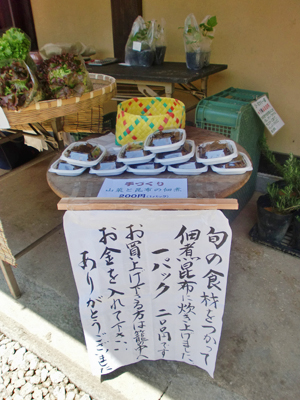 手づくり
山菜と昆布の佃煮
200円
旬の食材をつかって
佃煮昆布に炊き上げました
一パック 二〇〇円です
お買上げできる方は籠の中へ
お金を入れて下さい
ありがとうございました